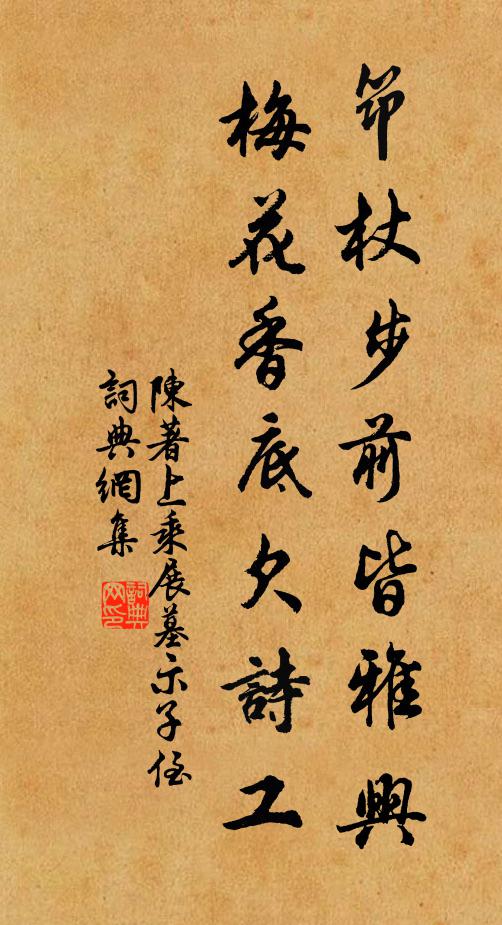 筇杖步前皆雅興
梅花香底欠詩工
陳著上乘展墓示子侄
詞典網集
詞典網印